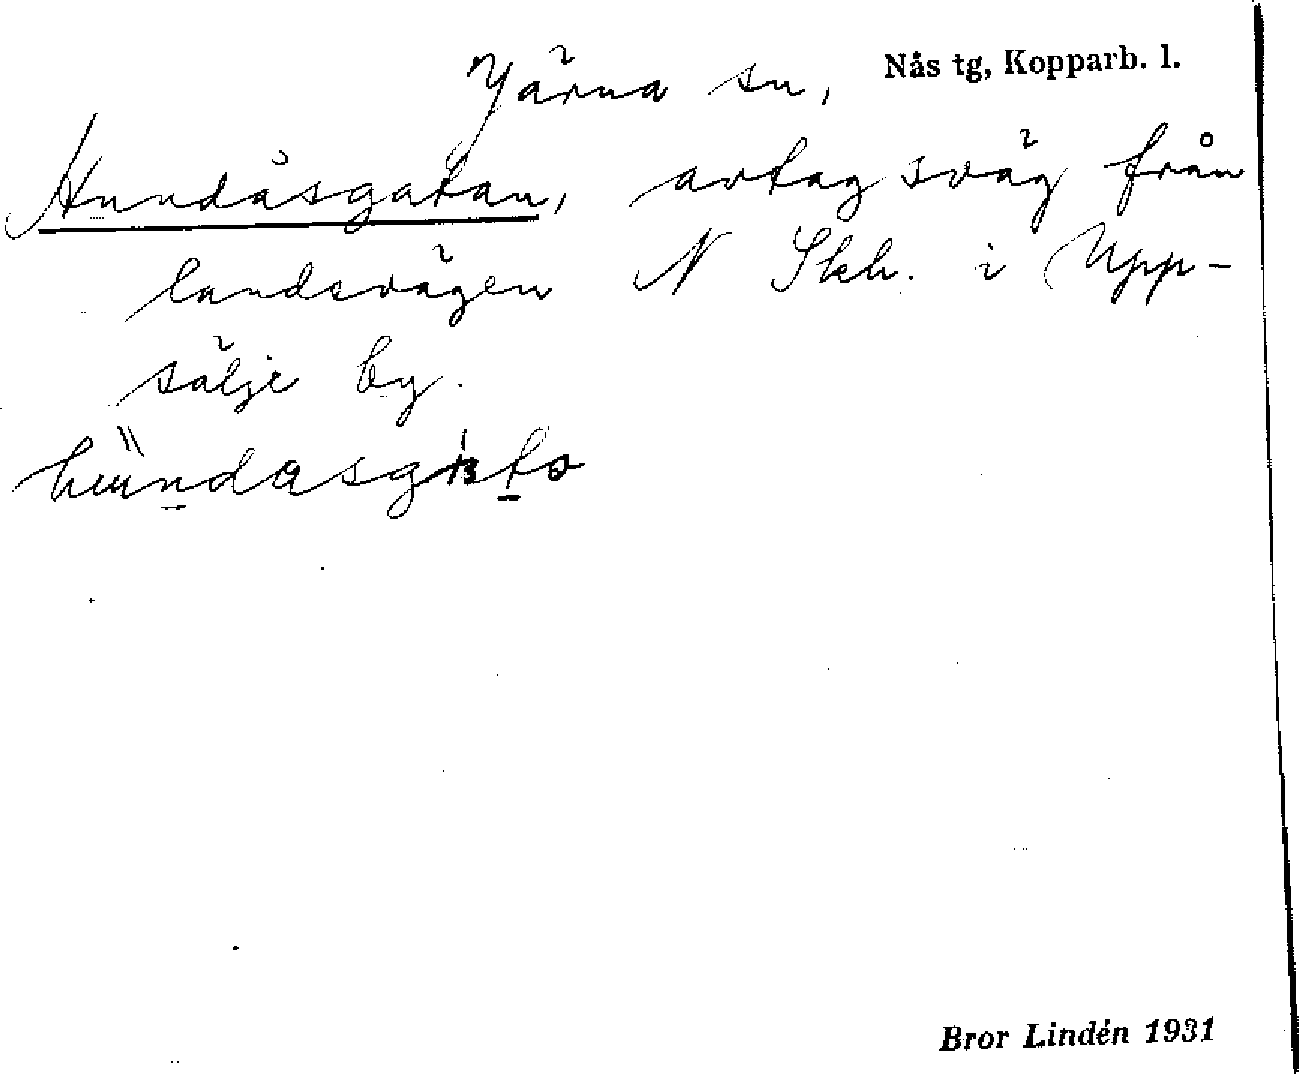 Järna sn, Nås tg, Kopparb. l.
Hundåsgatan, avtagsväg från
landsvägen N Skh. i Upp-
sälje by.
Bror Lindén 1931